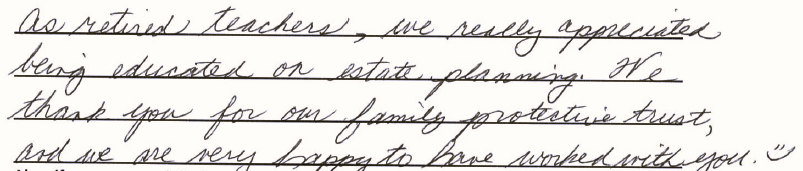 As retired teachers, we really appreciated
being educated on estate planning. We
thank you for our family protective trust,
and we are very happy to have worked with you. :)